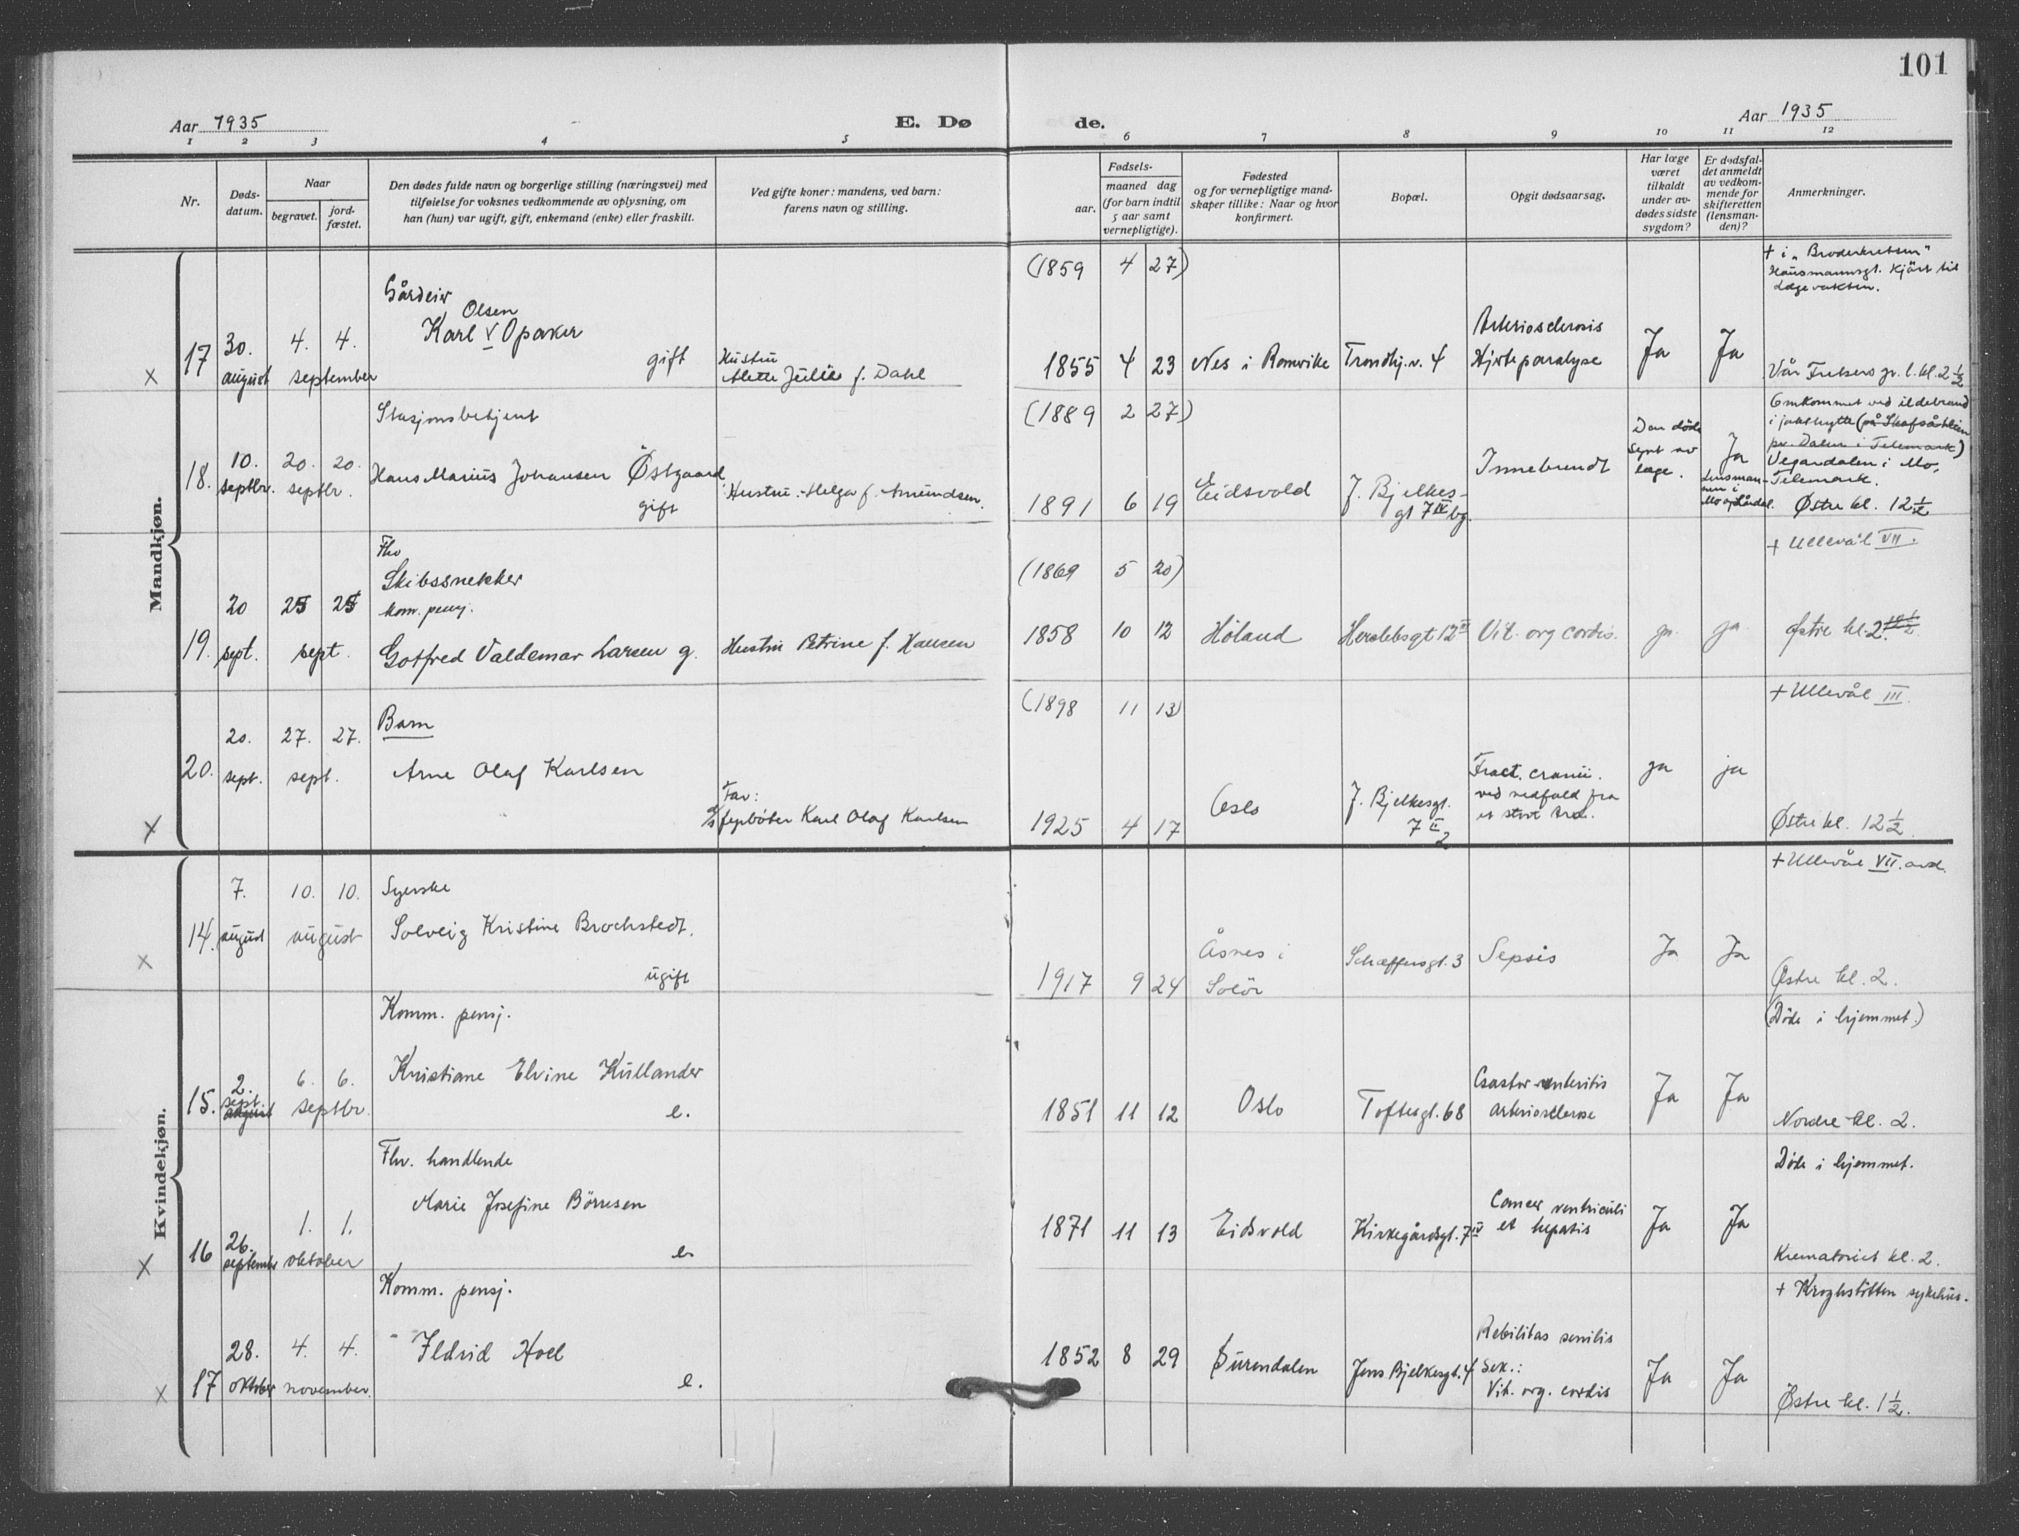 101
Aar 1935
E. Dø
de.
Aar 1935
1 2 3 4 5 6 7 8 9 10 11 12
Nr.
Døds-
datum.
Naar
begravet.
jord-
fæstet.
Den dødes fulde navn og borgerlige stilling (næringsvei) med
tilføielse for voksnes vedkommende av oplysning, om
han (hun) var ugift, gift, enkemand (enke) eller fraskilt.
Ved gifte koner: mandens, ved barn:
farens navn og stilling.
Fødsels-
aar.
maaned dag
(for barn indtil
5 aar samt
vernepligtige).
Fødested
og for vernepligtige mand-
skaper tillike: Naar og hvor
konfirmert.
Bopæl.
Opgit dødsaarsag.
Har læge
været
tilkaldt
under av-
dødes sidste
sygdom?
Er dødsfal-
det anmeldt
av vedkom-
mende for
skifteretten
(lensman-
den)?
Anmerkninger.
Mandkjøn.
(1859 4 27)
+ i "Broderkretsen"
Hausmannsgt. kjört til
Lægevakten.
Gårdeier
Olsen
17 30. 4. 4. Karl V Opaker
gift
Hustru
Alette Julie f. Dahl
1855 4 23 Nes i Romerike Trondhj.v. 4
Arteriosclerosis
Hjerteparalyse
Ja Ja
x august september
Vår Frelsers gr. l. kl. 2 1/2
Stasjonsbetjent
(1889 2 27)
Omkommet ved ildebrand
i jakthytte (på Skafsåheien
pr. Dalen i Telemark)
Vegardalen i Mo,
Telemark.
18. 10. 20. 20. Hans Marius Johansen Östgaard
septbr. septbr.
gift
Hustru: Helga f. Amundsen.
1891 6 19 Eidsvold
J. Bjelkes-
gt 7 IV bg.
Innebrendt
Den døde
synt av
læge.
Ja
Lensman-
nen i
Østre kl. 12 1/2
Fhv
Skibssnekker
kom. pensj.
(1869 5 20)
+ Ullevål VII.
19. 20 25 25
sept. sept.
Gotfred Valdemar Larsen g.
Hustru Petrine f. Hansen
1858 10 12 Høland Herslebsgt 12 III Vit. org cordis. ja. ja.
Østre kl. 2.
Barn
(1898 11 13)
+ Ullevål III.
20. 20. 27. 27.
sept. sept.
Arne Olaf Karlsen
Far:
Karl Olaf Karlsen
1925 4 17 Oslo
J. Bjelkesgt.
7 II 2
Fract. cranii.
ved nedfald fra
ja ja
x
Østre kl. 12 1/2
Kvindekjøn.
+ Ullevål VII. avd.
7. 10. 10. Syerske
14. august august Solveig Kristine Brochstedt.
ugift
1917 9 24
Åsnes i
Solör
Schæffersgt. 3 Sepsis Ja Ja
x
Østre kl. 2.
Komm. pensj.
(Døde i hjemmet.)
15. 2. 6. 6. Kristiane Elvine Kullander
sept.
august
septbr.
e.
1851 11 12 Oslo Toftesgt. 68
Gastro-enteritis
arteriosclerose
Ja Ja
Nordre kl. 2.
Fhv. handlende
Døde i hjemmet.
Marie Josefine Börresen
16 26. 1. 1.
september oktober
e.
1871 11 13 Eidsvold Kirkegårdsgt. 7 IV
Cancer ventriculi
et hepatis
Ja Ja
x
Krematoriet kl. 2.
Komm. pensj.
+ Kroghstötten sykehus.
17 28. 4. 4. Ildrid Hoel
oktober november.
e.
1852 8 29 Surendalen Jens Bjelkesgt. 4
Debilitas senilis
Sek.:
Vit. org. cordis
Ja Ja
x
Østre kl. 1 1/2.